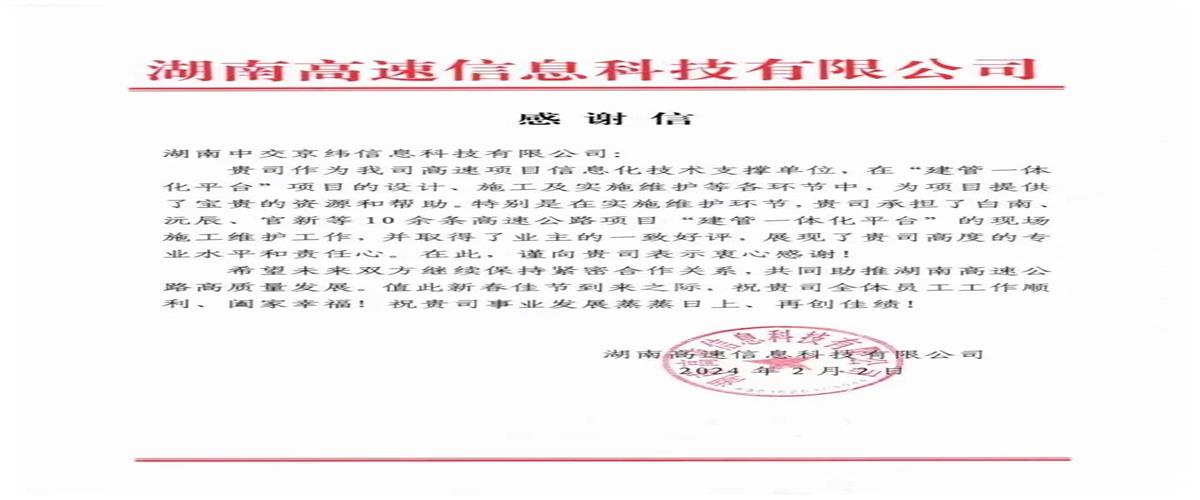 湖南高速信息科技有限公司
感谢信
湖南中交京纬信息科技有限公司：
贵司作为我司高速项目信息化技术支撑单位，在“建管一体
化平台”项目的设计、施工及实施维护等各环节中，为项目提供
了宝贵的资源和帮助。特别是在实施维护环节，贵司承担了白南、
沅辰、官新等10余条高速公路项目“建管一体化平台”的现场
施工维护工作，并取得了业主的一致好评，展现了贵司高度的专
业水平和责任心。在此，谨向贵司表示衷心感谢！
希望未来双方继续保持紧密合作关系，共同助推湖南高速公
路高质量发展。值此新春佳节到来之际，祝贵司全体员工工作顺
利、阖家幸福！祝贵司事业发展蒸蒸日上、再创佳绩！
湖南高速信息科技有限公司
2024年2月2日
湖南高速信息科技有限公司